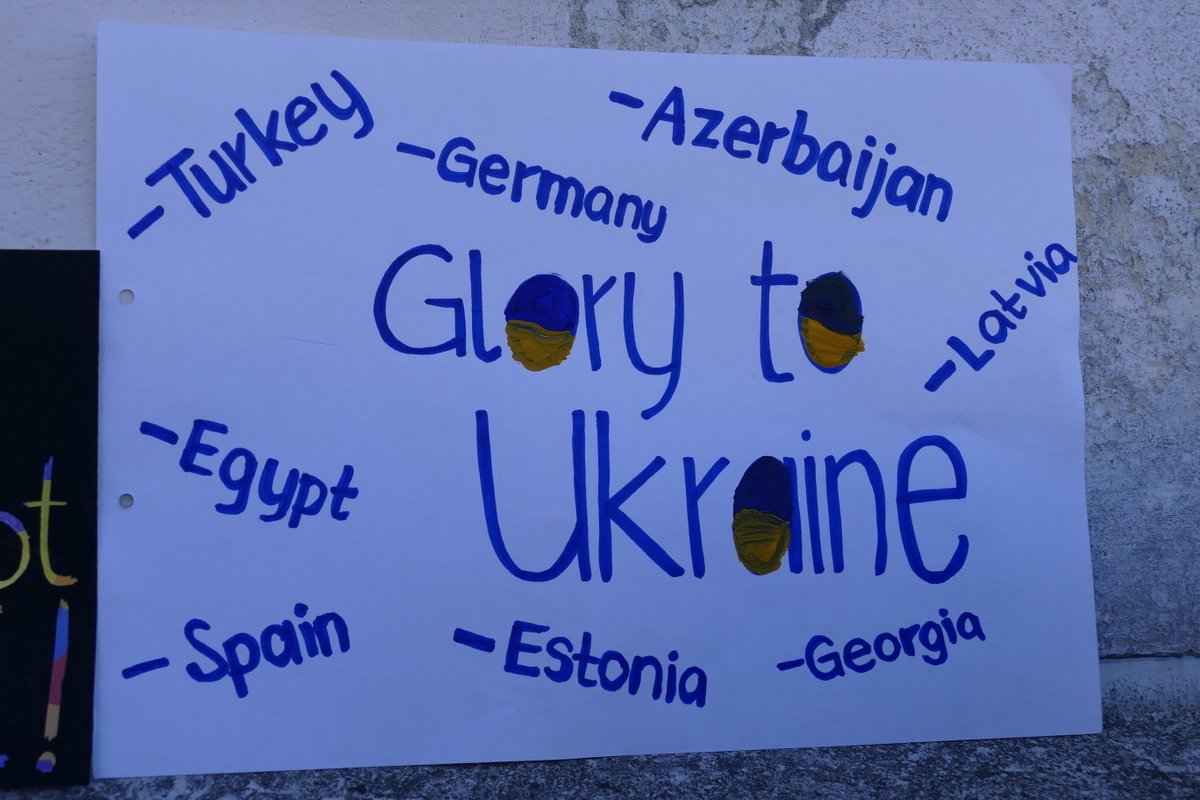 -Turkey
-Germany
-Azerbaijan
Glory to
-Latvia
Ukraine
-Egypt
-Spain
-Estonia
-Georgia